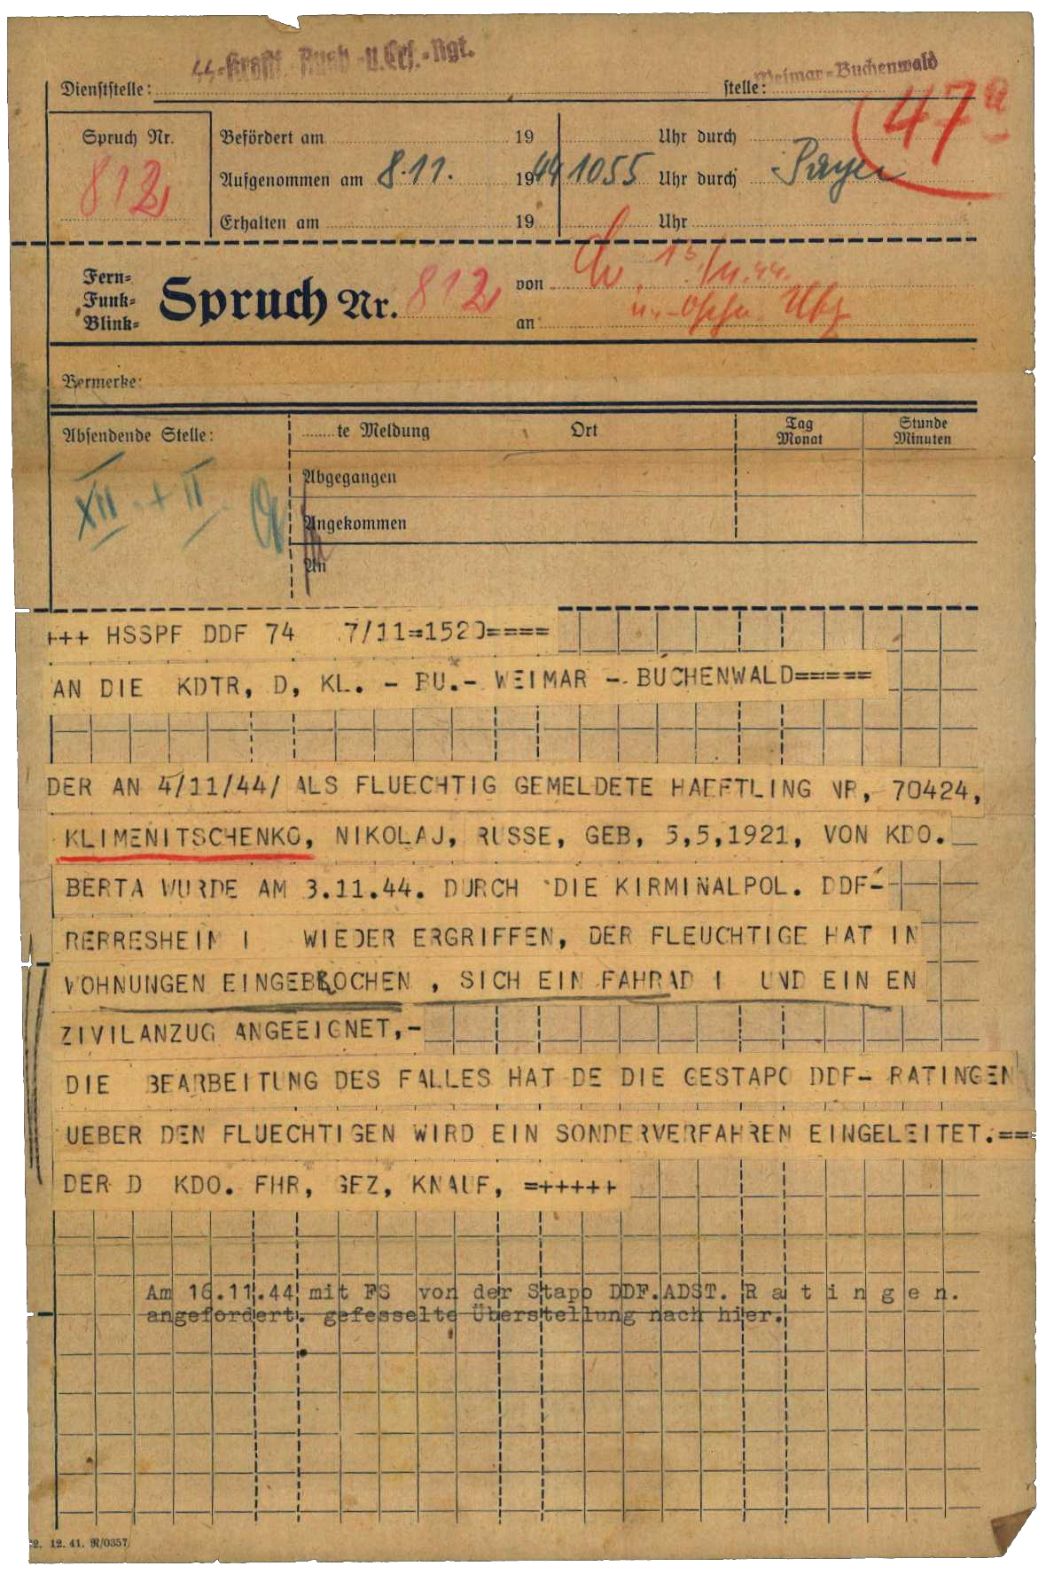 SS-Kraftf. Ausb.-u.Ers.-Rgt.
Weimar-Buchenwald
Dienststelle: stelle:
47a
Spruch Nr.
812
Befördert am 19 Uhr durch
Aufgenommen am 8.11. 1944 1055 Uhr durch
Erhalten am 19 Uhr
Fern-
Funk-
Blink-
Spruch Nr. 812 von
an
Bermerke:
Absendende Stelle:
......te Meldung Ort Tag Monat Stunde Minuten
XII. + II.
Abgegangen
Angekommen
An
+++ HSSPF DDF 74 7/11=1520====
AN DIE KDTR, D, KL. - BU.- WEIMAR -- BUCHENWALD=====
DER AN 4/11/44/ ALS FLUECHTIG GEMELDETE HAEFTLING NR, 70424,
KLIMENITSCHENKO, NIKOLAJ, RUSSE, GEB, 5,5,1921, VON KDO.
BERTA WURDE AM 3.11.44. DURCH DIE KIRMINALPOL. DDF-
RERRESHEIM I WIEDER ERGRIFFEN, DER FLEUCHTIGE HAT IN
WOHNUNGEN EINGEBROCHEN , SICH EIN FAHRAD I UND EIN EN
ZIVILANZUG ANGEEIGNET,-
DIE BEARBEITUNG DES FALLES HAT DE DIE GESTAPO DDF- RATINGEN
UEBER DEN FLUECHTIGEN WIRD EIN SONDERVERFAHREN EINGELEITET.==
DER D KDO. FHR, GEZ, KNAUF, =+++++
Am 16.11.44 mit FS von der Stapo DDF.ADST. R a t i n g e n.
angefordert. gefesselte Überstellung nach hier.
12. 41. R/0357